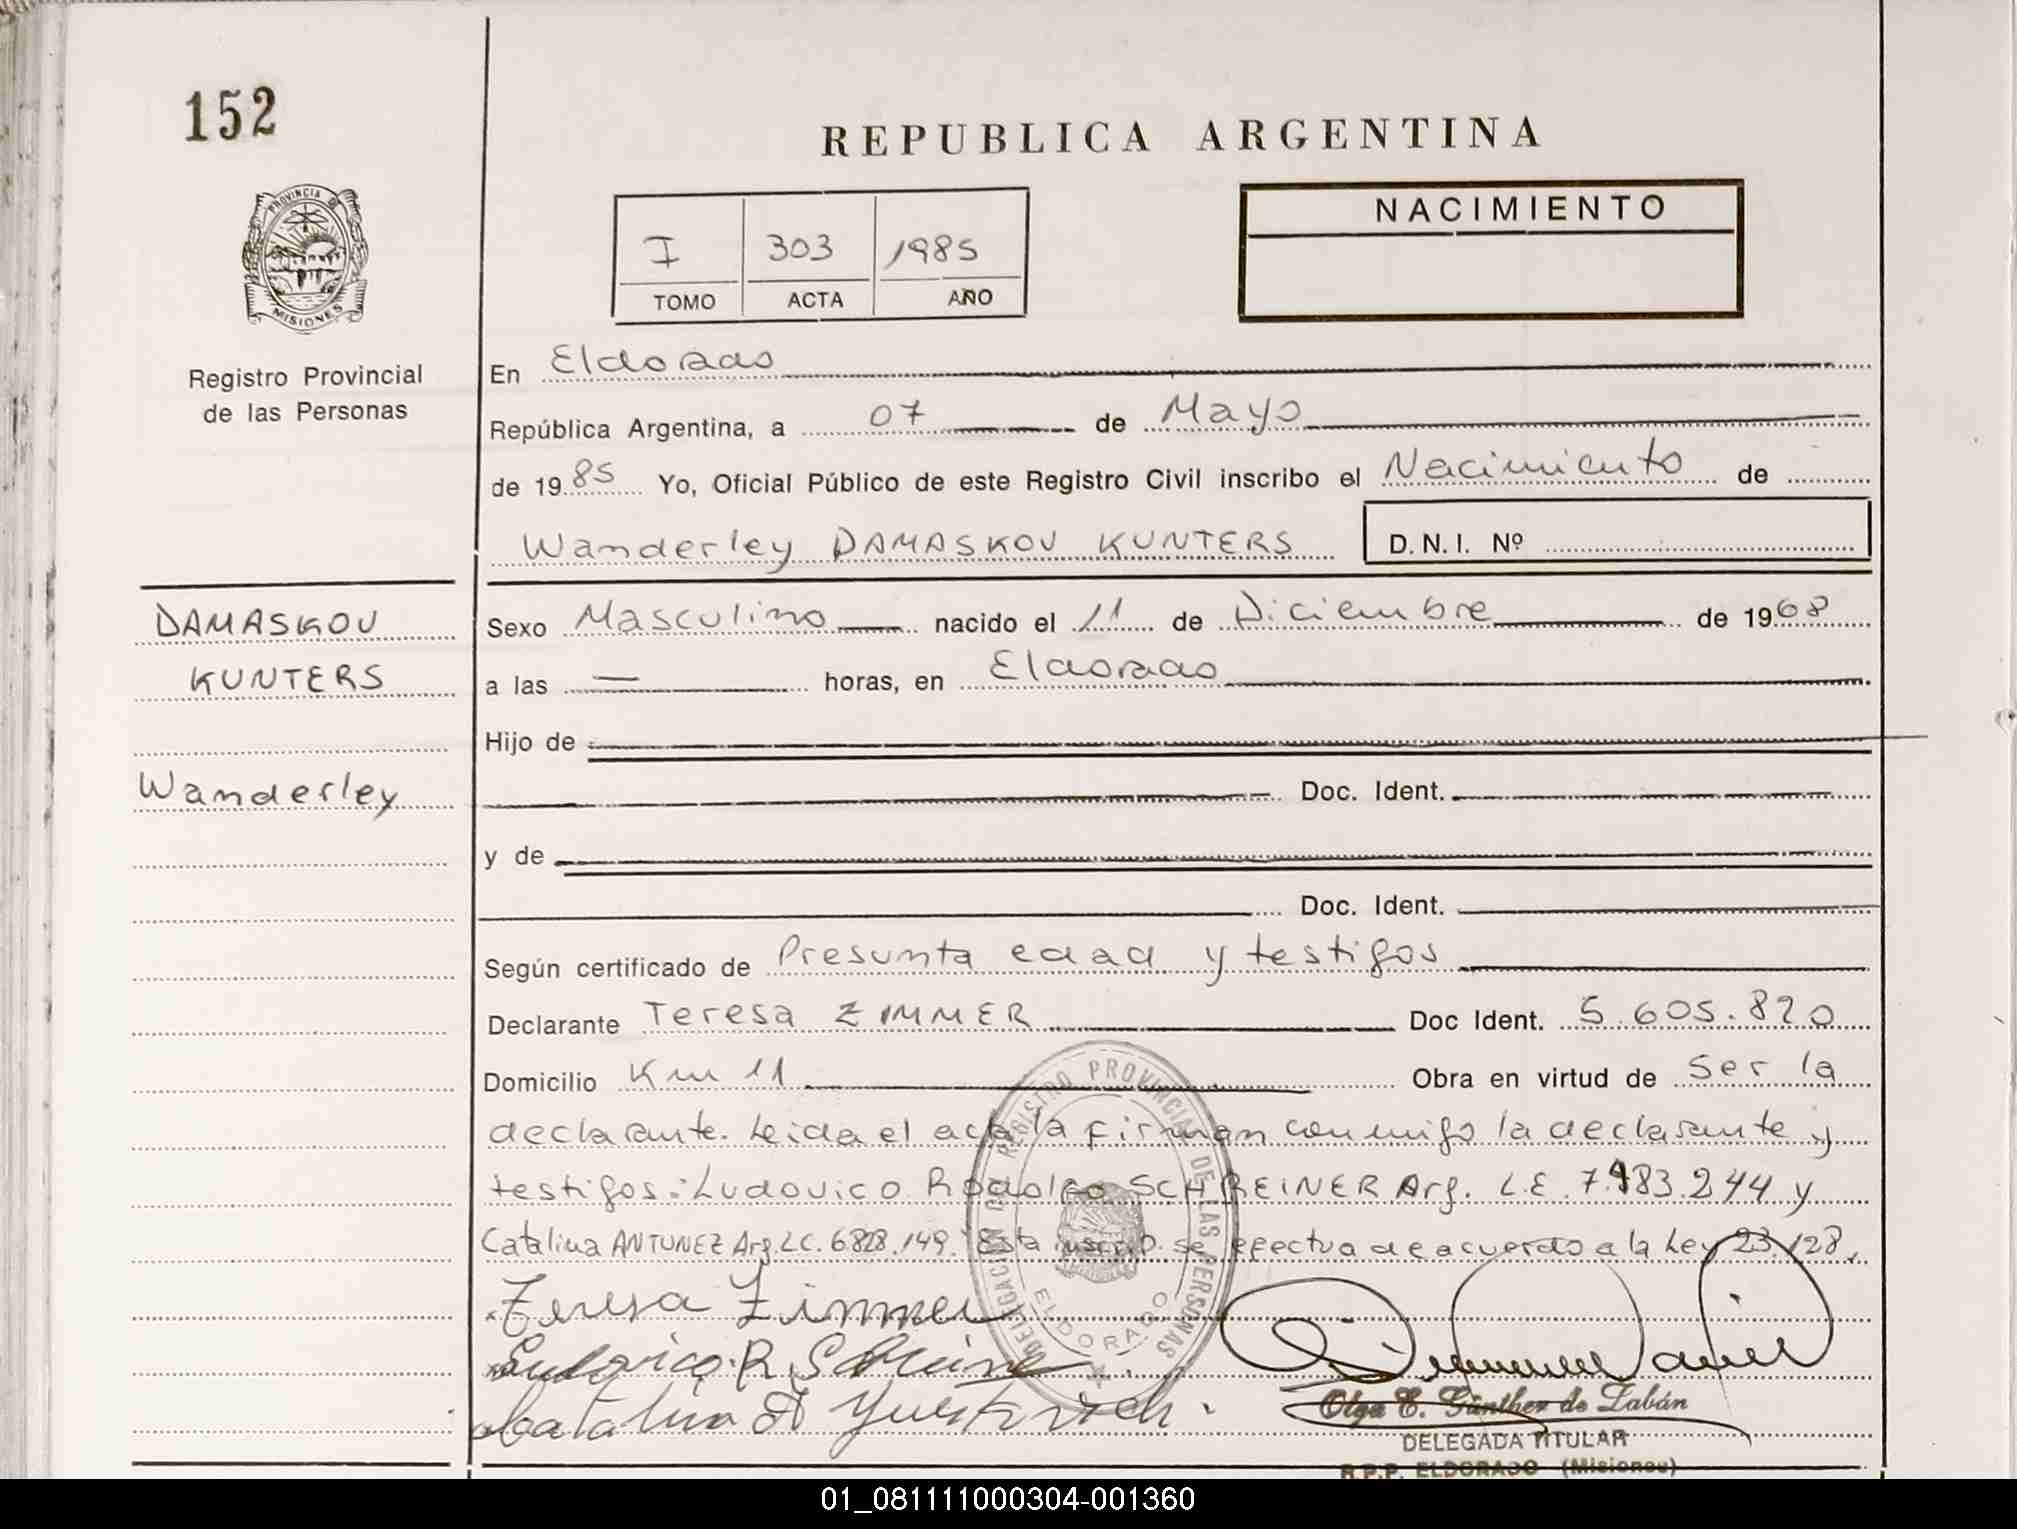 152
REPUBLICA ARGENTINA
PROVINCIA DE
MISIONES
Registro Provincial
de las Personas
I 303 1985
TOMO ACTA AÑO
NACIMIENTO
En Eldorado
República Argentina, a 07 de Mayo
de 1985 Yo, Oficial Público de este Registro Civil inscribo el Nacimiento de
Wanderley DAMASKOU KUNTERS D.N.I. Nº
DAMASKOU
KUNTERS
Wanderley
Sexo Masculino nacido el 11 de Diciembre de 1968
a las — horas, en Eldorado
Hijo de
Doc. Ident.
y de
Doc. Ident.
Según certificado de Presunta edad y testigos
Declarante Teresa ZIMMER Doc Ident. 5.605.820
Domicilio Km 11 Obra en virtud de Ser la
declarante. Leida el acta la firman conmigo la declarante y
testigos: Ludovico Rodolfo SCHREINER Arg. L.E. 7.483.244 y
Catalina ANTUNEZ Arg. LC. 6828.149. Esta inscrip. se efectua de acuerdo a la Ley 23.128.
DELEGACION DE REGISTRO PROVINCIAL DE LAS PERSONAS
ELDORADO
Teresa Zimmer
Ludovico R Schreiner
Catalina A
Olga E. Günther de Zabán
DELEGADA TITULAR
R.P.P. ELDORADO (Misiones)
01_081111000304-001360